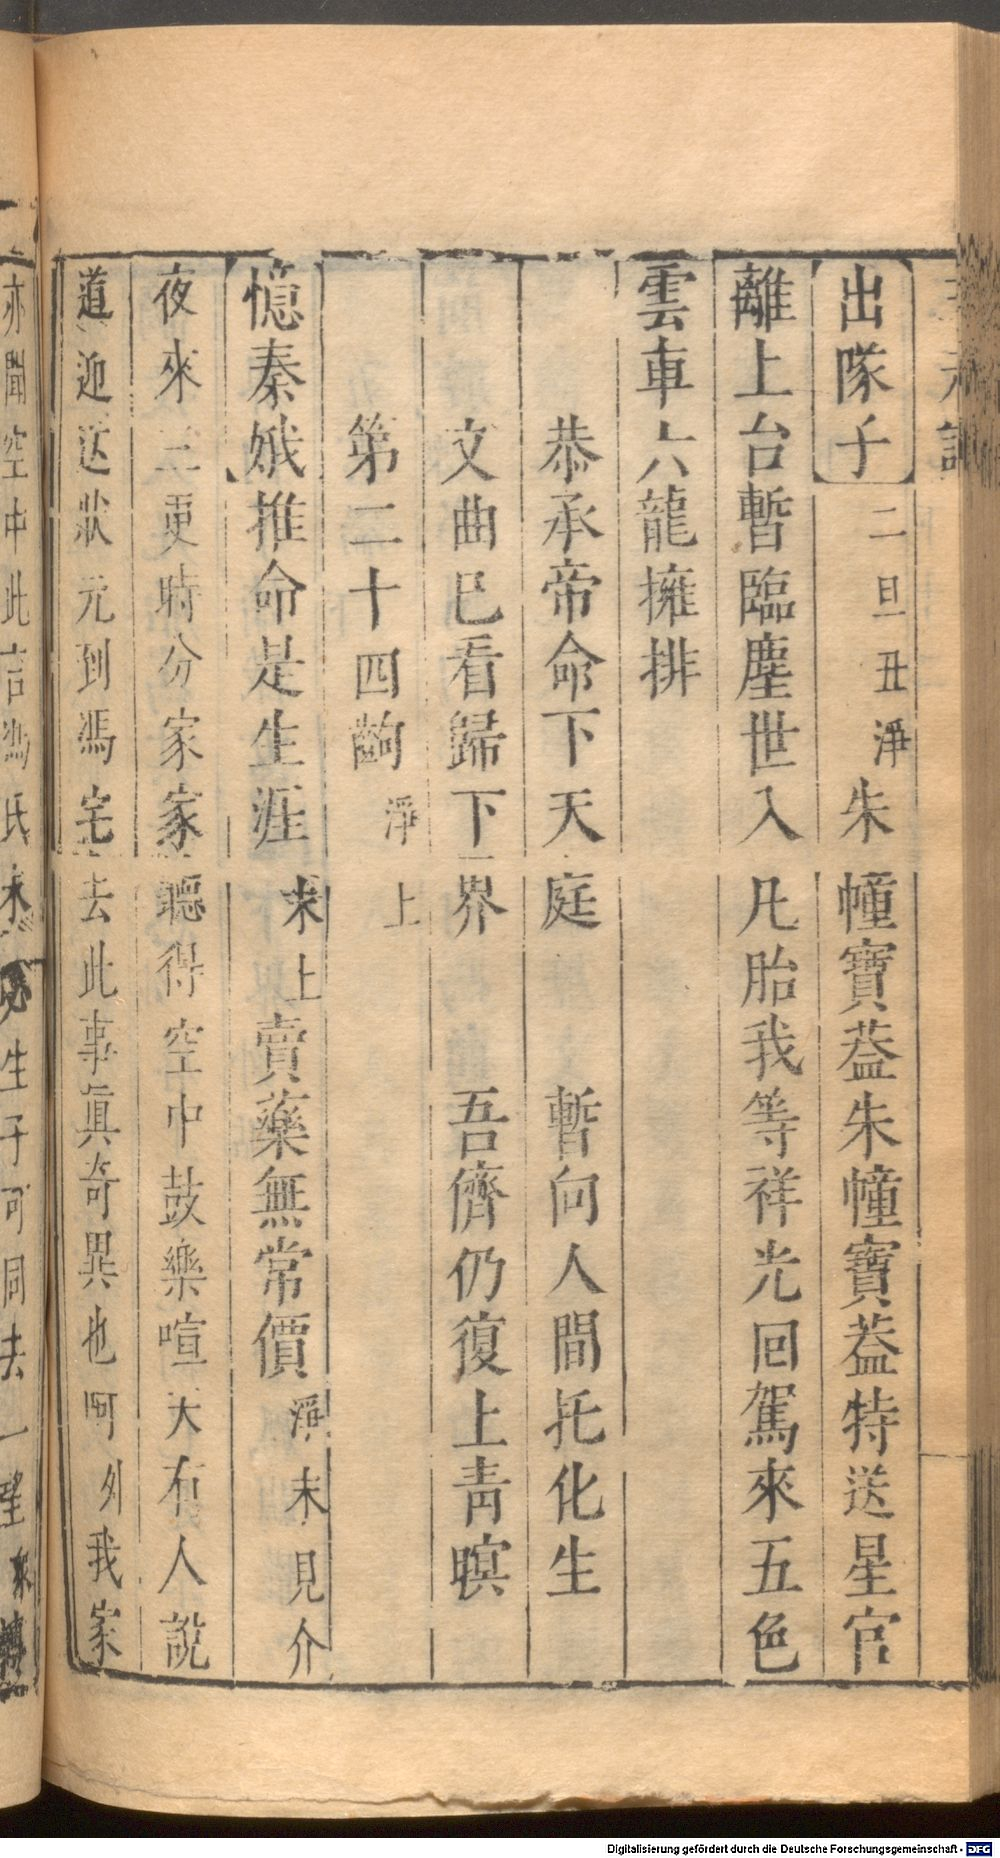 三元記
出隊子 二旦丑淨 朱幢寶葢朱幢寶葢特送星官
離上台暫臨塵世入凡胎我等祥光回駕來五色
雲車六龍擁排
恭承帝命下天庭 暫向人間托化生
文曲巳看歸下界 吾儕仍復上青暝
第二十四齣 淨上
憶秦娥推命是生涯 末上 賣藥無常價 淨末見介
夜來二更時分家家聽得空中鼓樂喧天有人說
道迎送狀元到馮宅去此事眞奇異也啊外我家
亦聞空中此言馮氏 生子可同去一望
Digitalisierung gefördert durch die Deutsche Forschungsgemeinschaft - DFG